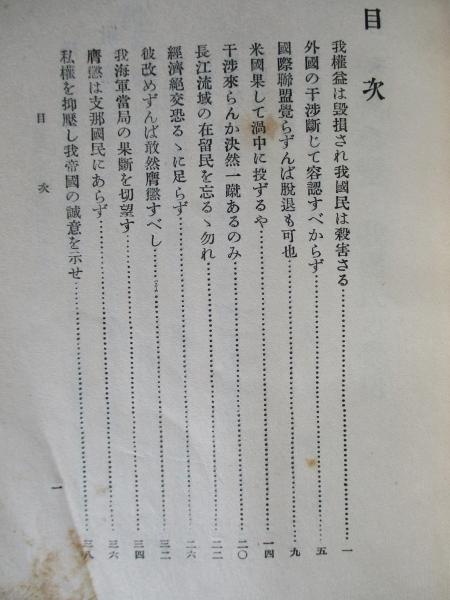 目次
我權益は毀損され我國民は殺害さる……一
外國の干渉斷じて容認すべからず……五
國際聯盟覺らずんば脱退も可也……九
米國果して渦中に投ずるや……一四
干渉來らんか決然一蹴あるのみ……二〇
長江流域の在留民を忘るゝ勿れ……二二
經濟絕交恐るゝに足らず……二六
彼改めずんば敢然膺懲すべし……三二
我海軍當局の果斷を切望す……三四
膺懲は支那國民にあらず……三六
私權を抑壓し我帝國の誠意を示せ……三八
目次
一